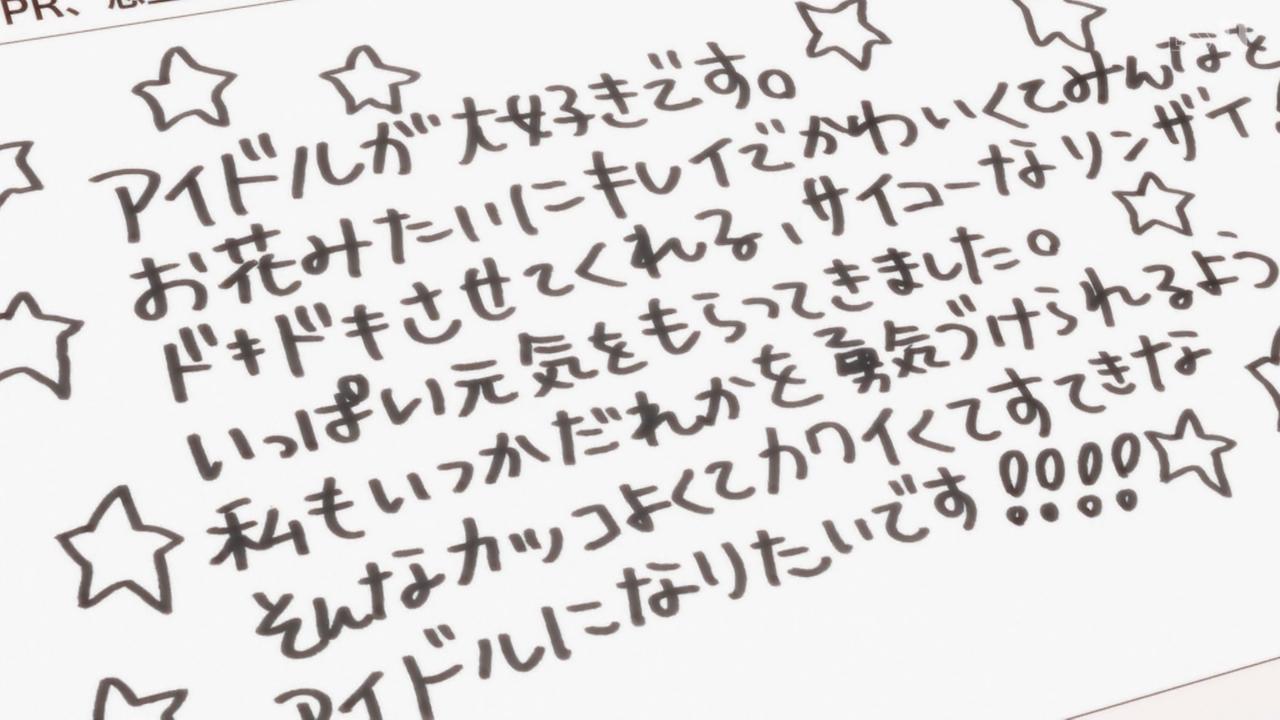 PR、
アイドルが大好きです。
お花みたいにキレイでかわいくてみんなと
ドキドキさせてくれる、サイコーなリンザイ
いっぱい元気をもらってきました。
私もいつかだれかを勇気づけられるよう
そんなカッコよくてカワイくてすてきな
アイドルになりたいです!!!!